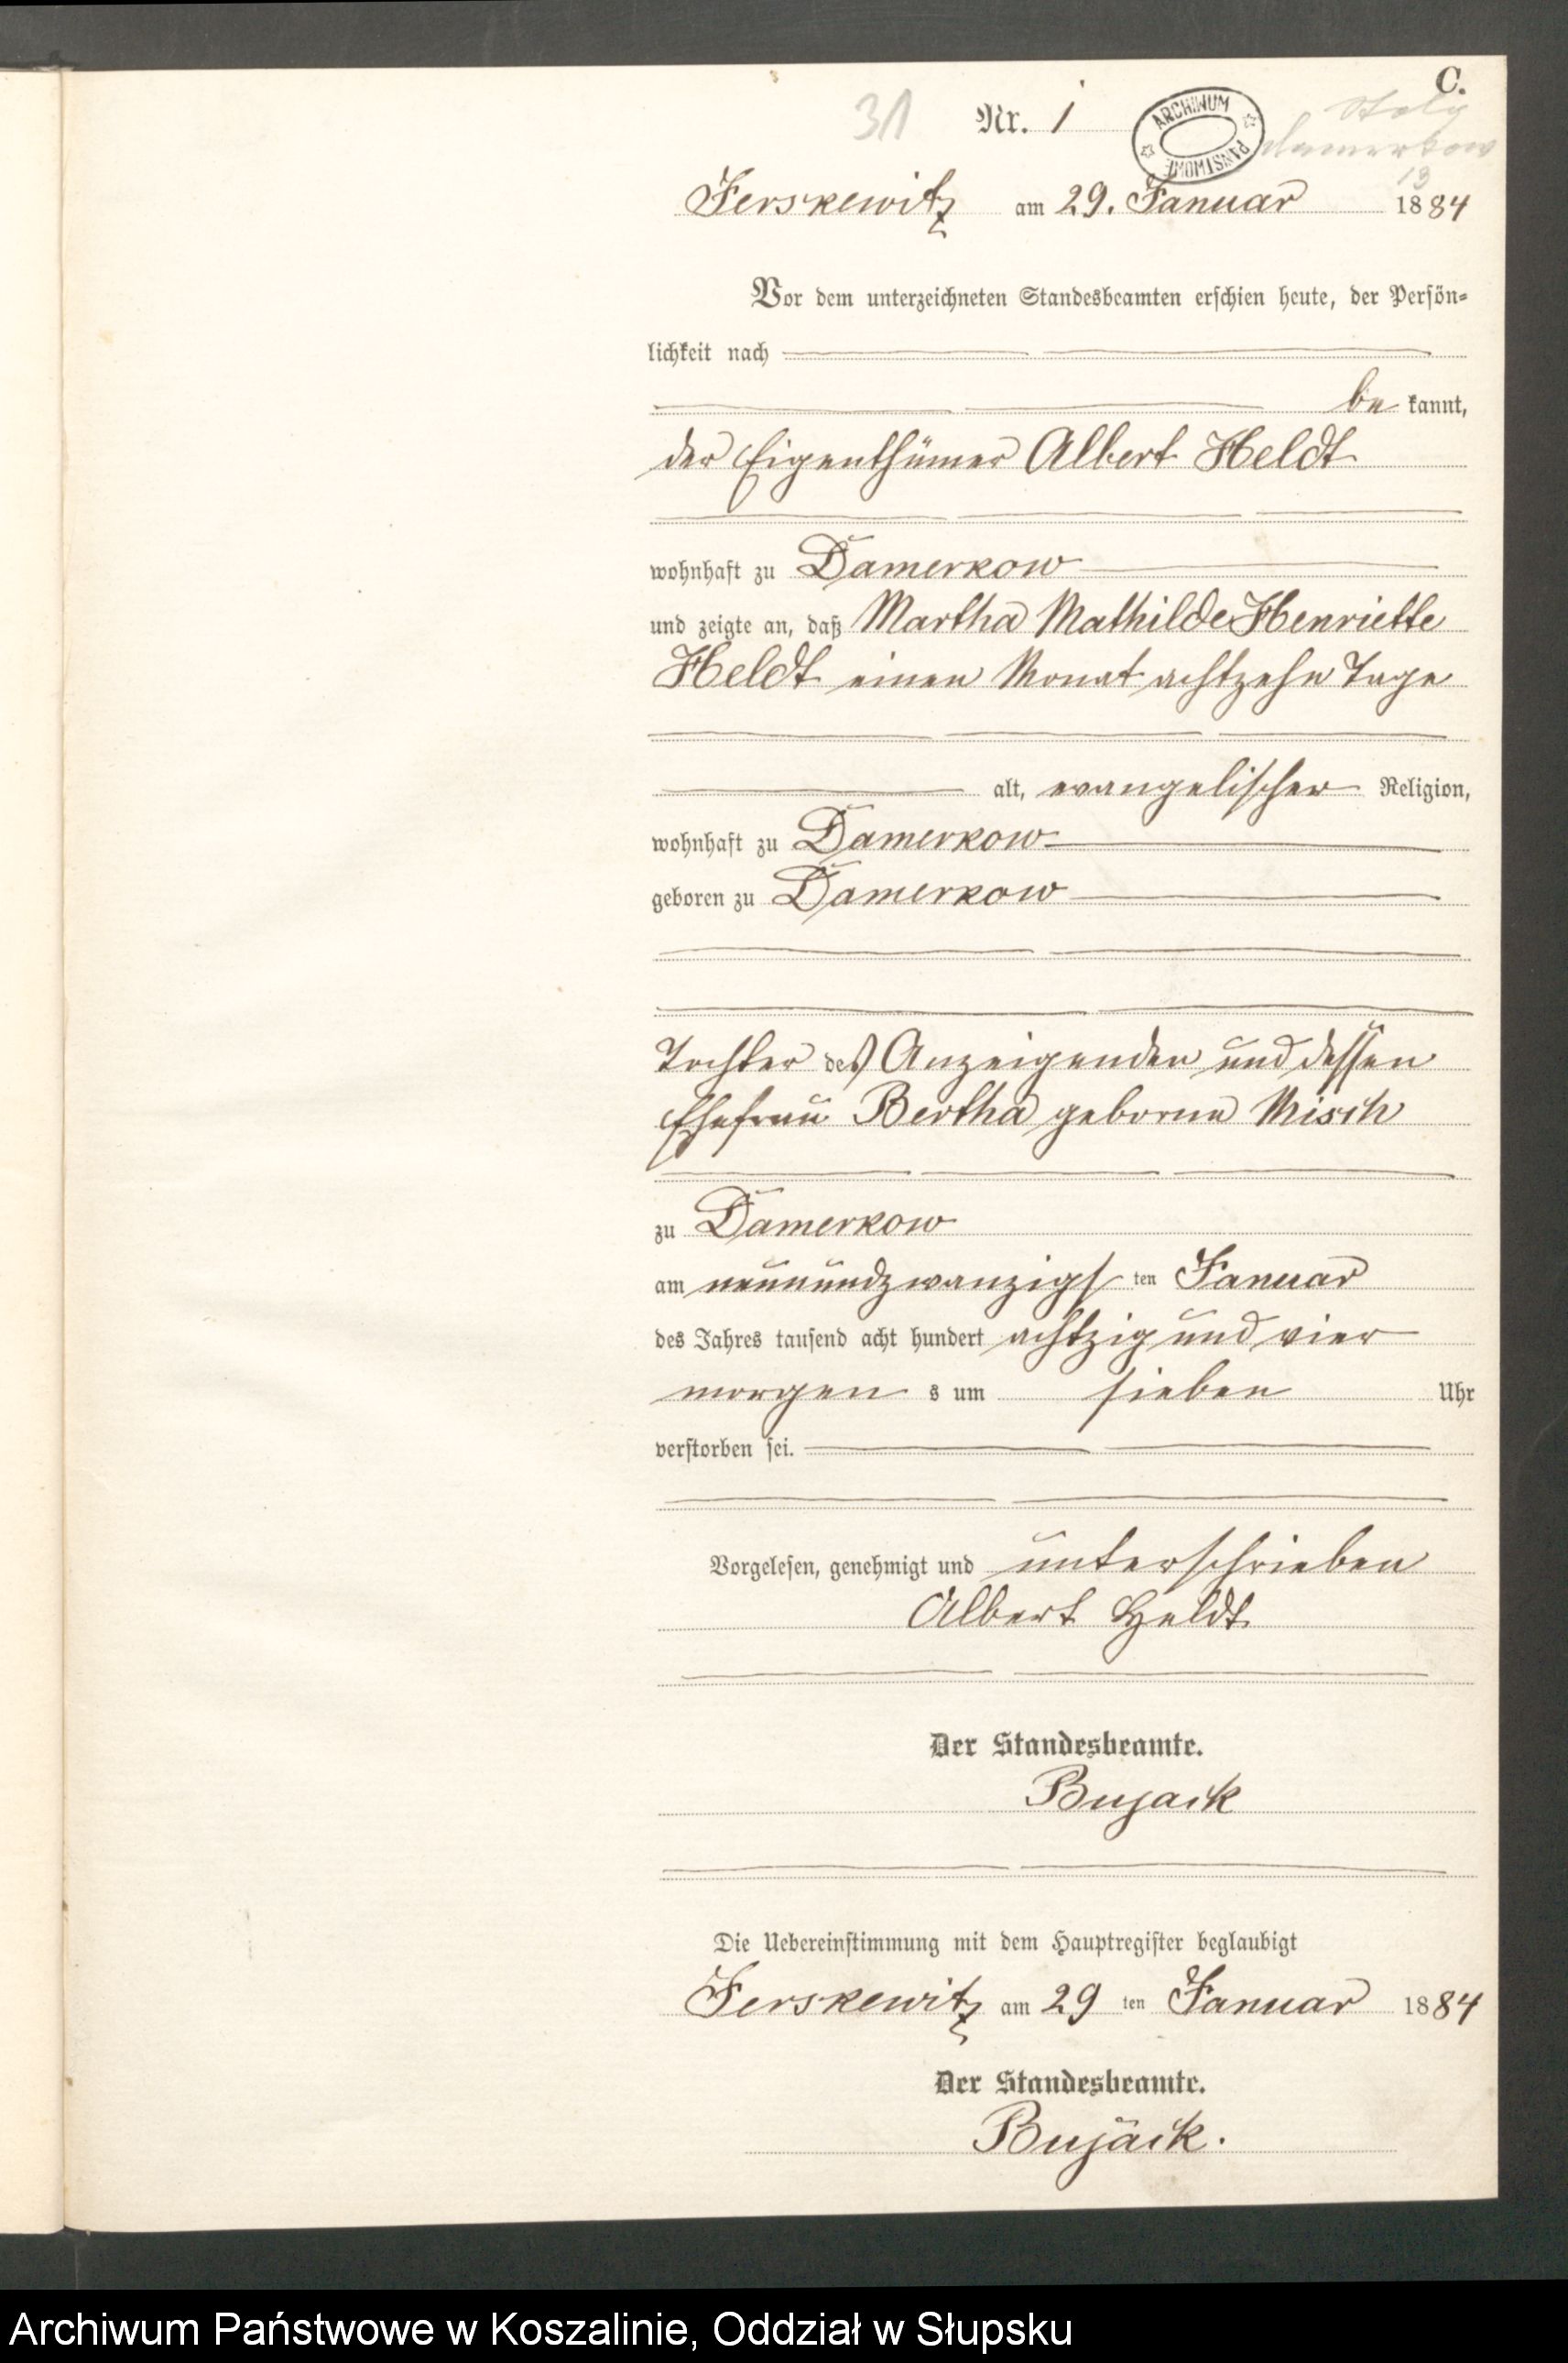 C.
31 Nr. 1
ARCHIWUM PAŃSTWOWE
Stolp
Damerkow
13
Jerskewitz am 29. Januar 1884
Vor dem unterzeichneten Standesbeamten erschien heute, der Persön-
lichkeit nach
be kannt,
der Eigenthümer Albert Heldt
wohnhaft zu Damerkow
und zeigte an, daß Martha Mathilde Henriette
Heldt einen Monat achtzehn Tage
alt, evangelischer Religion,
wohnhaft zu Damerkow
geboren zu Damerkow
Tochter des Anzeigenden und dessen
Ehefrau Bertha geborne Misch
zu Damerkow
am neunundzwanzigsten Januar
des Jahres tausend acht hundert achtzig und vier
morgens um sieben Uhr
verstorben sei.
Vorgelesen, genehmigt und unterschrieben
Albert Heldt
Der Standesbeamte.
Bujack
Die Uebereinstimmung mit dem Hauptregister beglaubigt
Jerskewitz am 29 ten Januar 1884
Der Standesbeamte.
Bujack.
Archiwum Państwowe w Koszalinie, Oddział w Słupsku